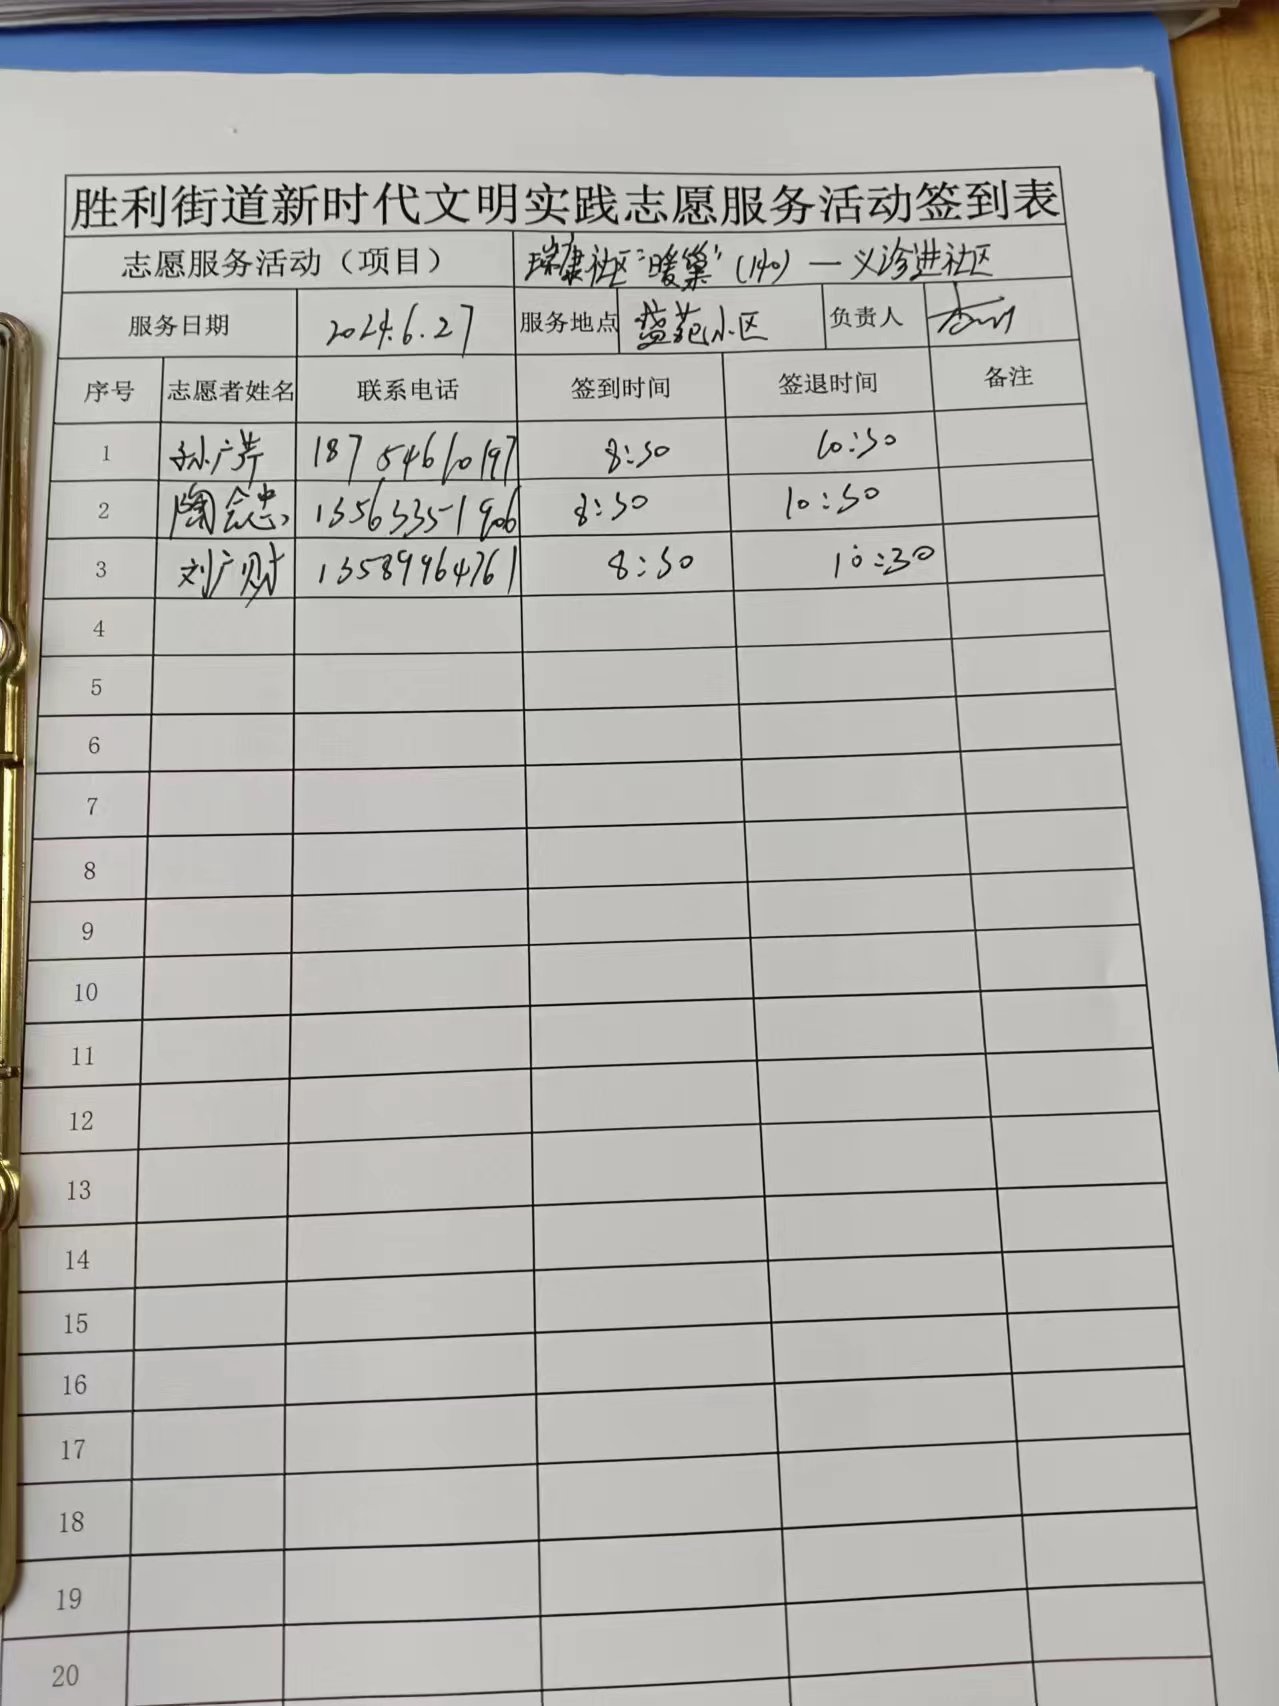 胜利街道新时代文明实践志愿服务活动签到表
志愿服务活动（项目） 瑞康社区“暖巢”（140）—义诊进社区
服务日期 2024.6.27 服务地点 小区 负责人
序号 志愿者姓名 联系电话 签到时间 签退时间 备注
1 孙广芹 18754610197 8:30 10:30
2 陶会忠 13563351906 8:30 10:30
3 刘广财 13589964761 8:30 10:30
4
5
6
7
8
9
10
11
12
13
14
15
16
17
18
19
20